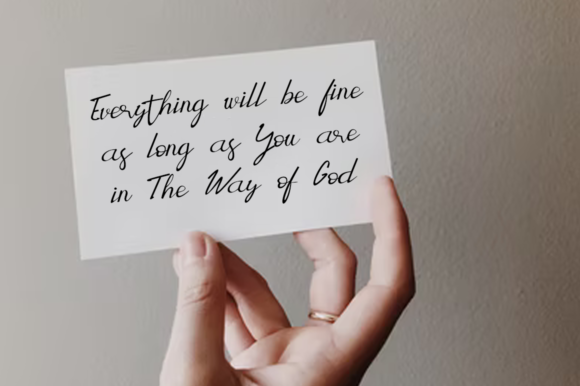 Everything will be fine
as long as You are
in The Way of God